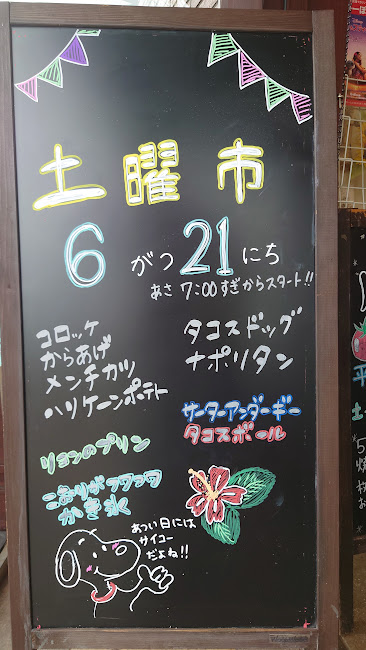 土曜市
6がつ21にち
あさ 7:00すぎからスタート!!
コロッケ
からあげ
メンチカツ
ハリケーンポテト
タコスドッグ
ナポリタン
サーターアンダーギー
タコスボール
リョンのプリン
こおりがフワフワ
かき氷
あつい日には
サイコー
だよね!!